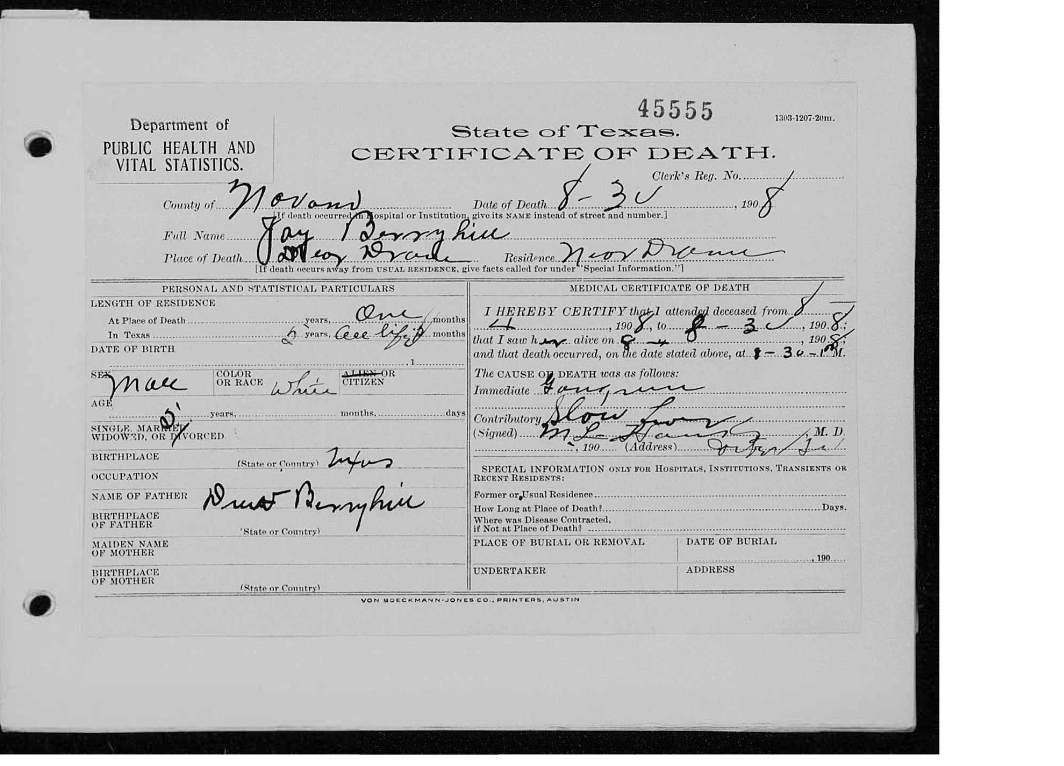 45555
1303-1207-20m.
Department of
PUBLIC HEALTH AND
VITAL STATISTICS.
State of Texas.
CERTIFICATE OF DEATH.
Clerk's Reg. No.
County of Date of Death 8-30, 1908
[If death occurred in Hospital or Institution, give its NAME instead of street and number.]
Full Name Jay Berryhill
Place of Death Near Residence Near
[If death occurs away from USUAL RESIDENCE, give facts called for under "Special Information."]
PERSONAL AND STATISTICAL PARTICULARS
LENGTH OF RESIDENCE
At Place of Death years, One months
In Texas 5 years, all life months
DATE OF BIRTH
, 1
SEX Male COLOR OR RACE White ALIEN OR CITIZEN
AGE
5 years, months, days
SINGLE, MARRIED,
WIDOWED, OR DIVORCED
BIRTHPLACE
(State or Country) Texas
OCCUPATION
NAME OF FATHER Berryhill
BIRTHPLACE
OF FATHER
(State or Country)
MAIDEN NAME
OF MOTHER
BIRTHPLACE
OF MOTHER
(State or Country)
MEDICAL CERTIFICATE OF DEATH
I HEREBY CERTIFY that I attended deceased from 8-
4, 1908, to 8-30, 1908;
that I saw h alive on 8-4, 1908,
and that death occurred, on the date stated above, at 8-30- M.
The CAUSE OF DEATH was as follows:
Immediate
Contributory Slow
(Signed) M L , M. D.
, 190 (Address)
SPECIAL INFORMATION ONLY FOR HOSPITALS, INSTITUTIONS, TRANSIENTS OR
RECENT RESIDENTS:
Former or Usual Residence
How Long at Place of Death? Days.
Where was Disease Contracted,
if Not at Place of Death?
PLACE OF BURIAL OR REMOVAL DATE OF BURIAL
, 190
UNDERTAKER ADDRESS
VON BOECKMANN-JONES CO., PRINTERS, AUSTIN